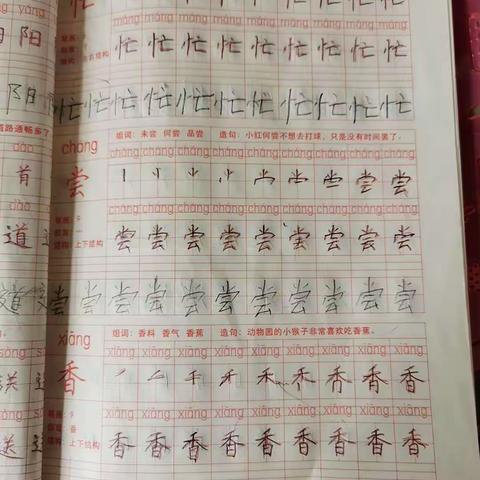 máng máng máng máng máng máng máng máng máng
忙 忙 忙 忙 忙 忙 忙 忙 忙
结构：左右结构
忙 忙 忙 忙 忙 忙 忙 忙 忙 忙 忙
cháng
组词：未尝 何尝 品尝 造句：小红何尝不想去打球，只是没有时间罢了。
尝
尝 尝
cháng cháng cháng cháng cháng cháng cháng cháng cháng
笔画：9
结构：上下结构
尝 尝 尝 尝 尝 尝 尝 尝 尝
尝 尝 尝 尝 尝 尝 尝 尝 尝 尝 尝
xiāng
组词：香料 香气 香蕉 造句：动物园的小猴子非常喜欢吃香蕉。
xiāng xiāng xiāng xiāng xiāng xiāng xiāng xiāng xiāng
香
香 香
xiāng xiāng xiāng xiāng xiāng xiāng xiāng xiāng xiāng
笔画：9
部首：香
结构：上下结构
香 香 香 香 香 香 香 香 香
阳
首
道